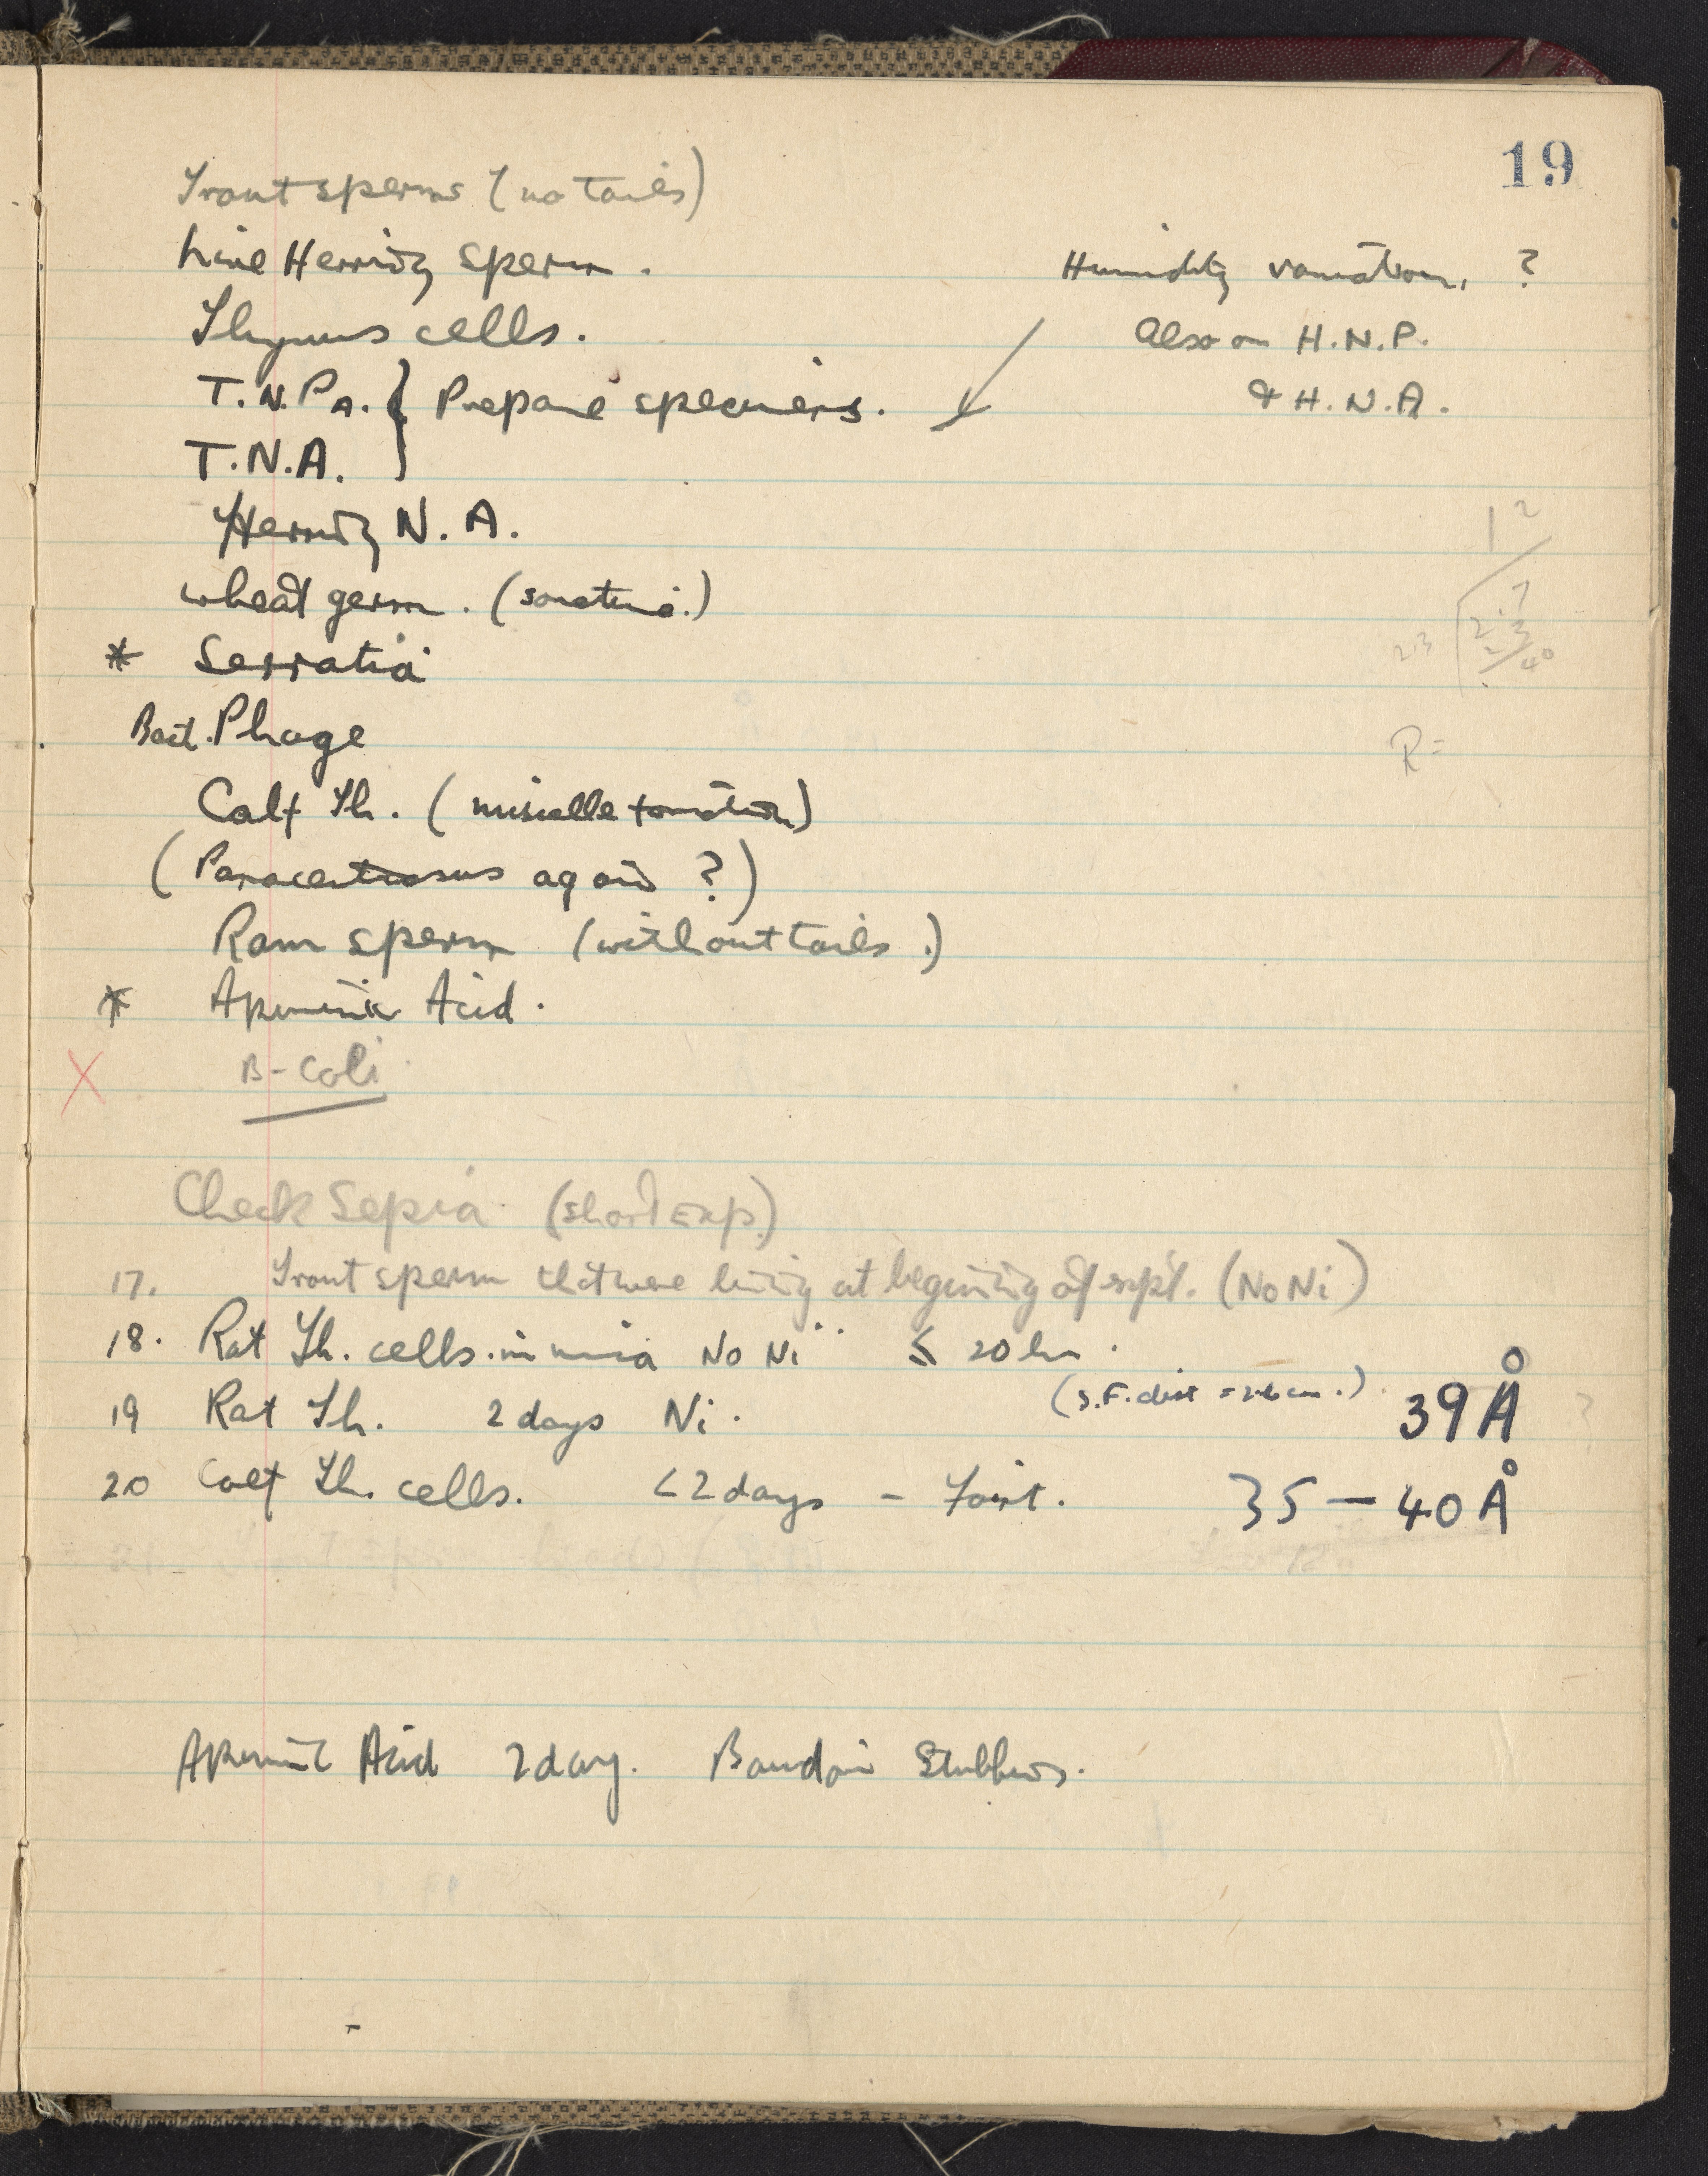 19
Trout sperms (no tails)
Live Herring sperm.
Humidity variation, ?
Thymus cells.
Also on H.N.P.
T.N.PA. } Prepare specimens.
& H.N.A.
T.N.A.
Herring N.A.
wheat germ. (sometime.)
* Serratia
Bact. Phage
R =
Calf Th. (micelle formation)
(Paracentrosus again ?)
Ram sperm (without tails.)
* Apurinic Acid.
X B-Coli
Check Sepia (short Exp.)
17. Trout sperm that were living at begining of expt. (No Ni)
18. Rat Th. cells. in mica No Ni ≤ 20 hr.
(S.F. dist = 2.6 cm.)
19 Rat Th. 2 days Ni. 39 Å
20 Calf Th. cells. < 2 days - Faint. 35 — 40 Å
Apurinic Acid 2 day. Baudoin Stubbers.